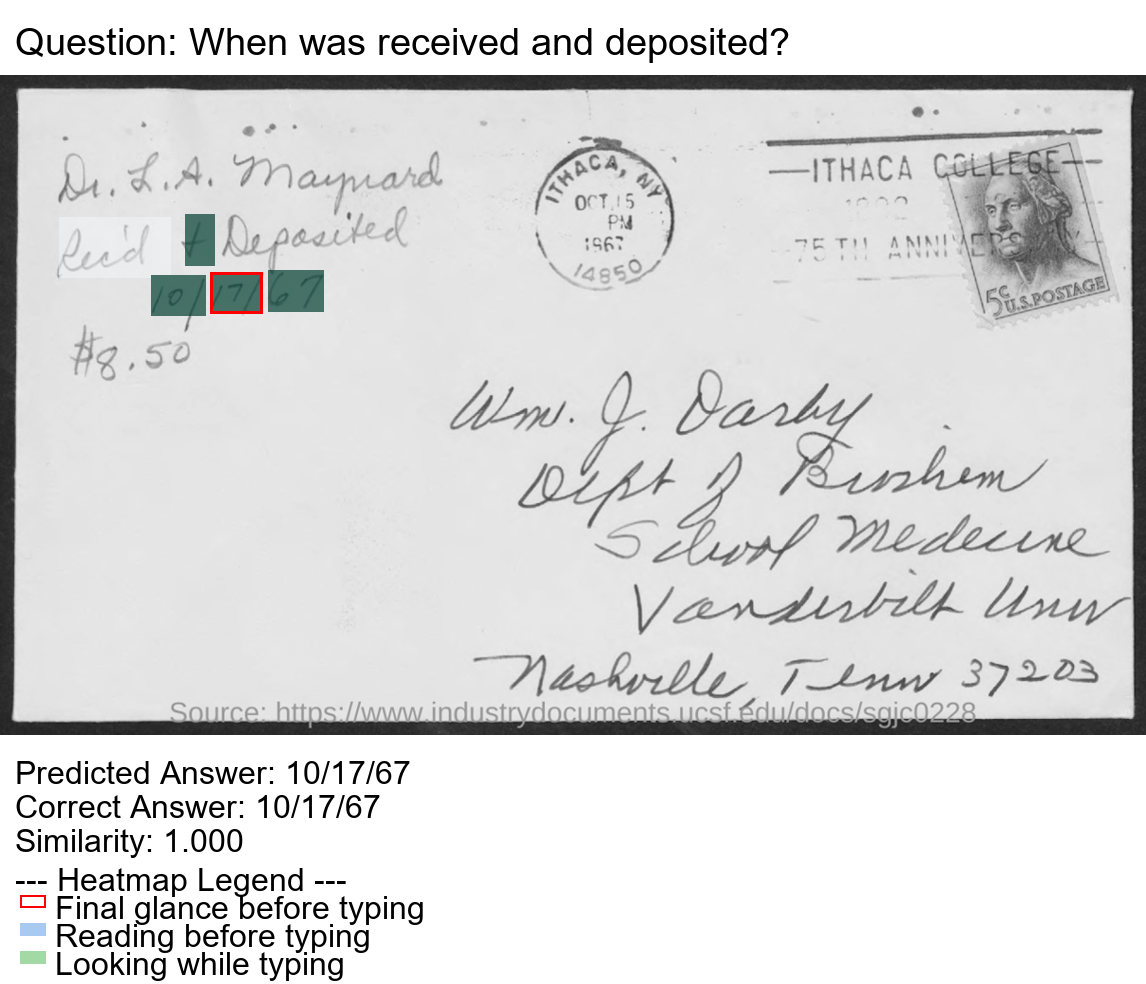 Question: When was received and deposited?
Dr. L.A. Maynard
Rec'd + Deposited
10/17/67
$8.50
ITHACA, NY
OCT 15
PM
1967
14850
ITHACA COLLEGE
75TH ANNIVERS
5¢ U.S.POSTAGE
Wm. J. Darby
Dept of Biochem
School Medecine
Vanderbilt Univ
Nashville, Tenn 37203
Source: https://www.industrydocuments.ucsf.edu/docs/sgjc0228
Predicted Answer: 10/17/67
Correct Answer: 10/17/67
Similarity: 1.000
--- Heatmap Legend ---
Final glance before typing
Reading before typing
Looking while typing